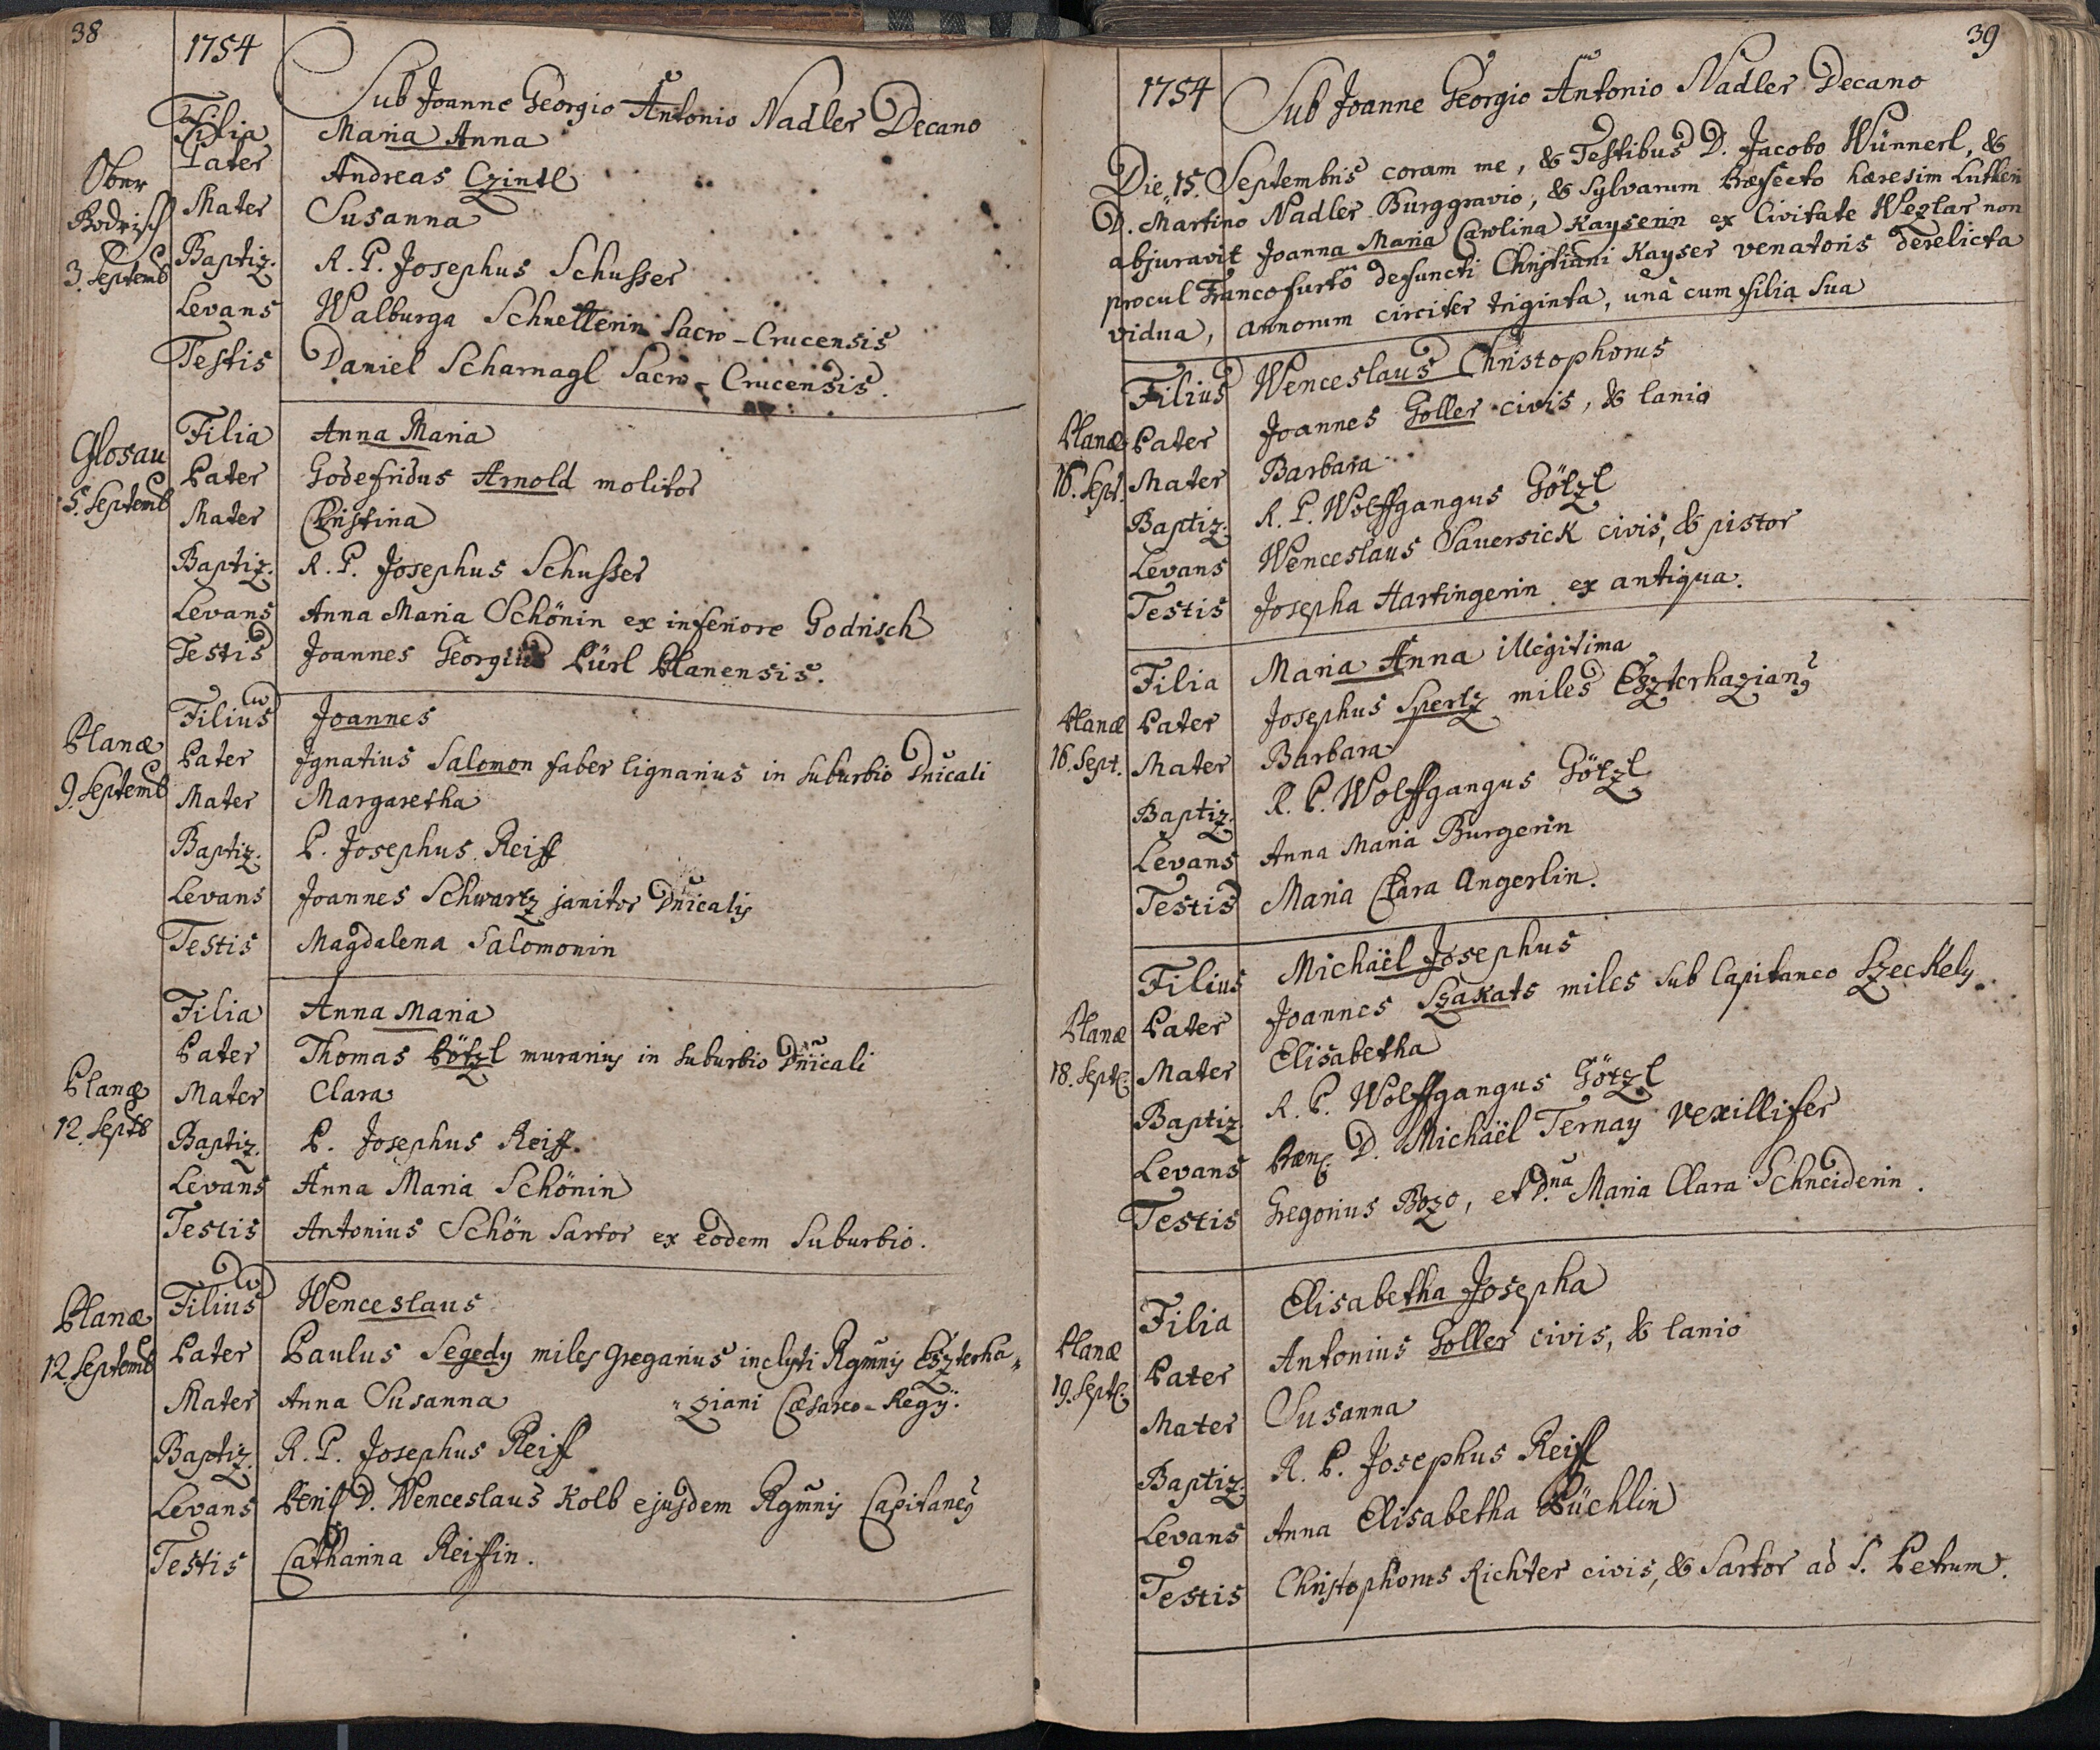 38
1754
Sub Joanne Georgio Antonio Nadler Decano
Filia Maria Anna
Ober Pater Andreas Czintl
Godrisch Mater Susanna
3. Septemb Baptiz. R. P. Josephus Schusser
Levans Walburga Schuellerin Sacro-Crucensis
Testis Daniel Scharnagl Sacro-Crucensis.
Filia Anna Maria
Glosau Pater Godefridus Arnold molitor
5. Septemb Mater Christina
Baptiz. R. P. Josephus Schusser
Levans Anna Maria Schönin ex inferiore Godrisch
Testis Joannes Georgius Pürl Planensis.
Filius Joannes
Planæ Pater Ignatius Salomon faber lignarius in suburbio Dnicali
9. Septemb Mater Margaretha
Baptiz. P. Josephus Reiff
Levans Joannes Schwartz janitor Dnicalis
Testis Magdalena Salomonin
Filia Anna Maria
Pater Thomas Pötzl murarius in suburbio Dnicali
Planæ Mater Clara
12. Septb Baptiz. P. Josephus Reiff.
Levans Anna Maria Schönin
Testis Antonius Schön Sartor ex eodem suburbio.
Planæ Filius Wenceslaus
12. Septemb Pater Paulus Segedy miles gregarius inclyti Rgmnis Eszterha„
Mater Anna Susanna „ziani Cæsareo-Regÿ.
Baptiz. R. P. Josephus Reiff
Levans D. Wenceslaus Kolb ejusdem Rgmnis Capitaneus
Testis Catharina Reiffin.
39
1754 Sub Joanne Georgio Antonio Nadler Decano
Die 15. Septembris coram me, & Testibus D. Jacobo Wünnerl, &
D. Martino Nadler Burggravio, & Sylvarum Præfecto hæresim Lutheri
abjuravit Joanna Maria Carolina Kayserin ex Civitate Wezlar non
procul Francofurto defuncti Christiani Kayser venatoris derelicta
vidua, annorum circiter triginta, unà cum filia sua
Filius Wenceslaus Christophorus
Planæ Pater Joannes Goller civis, & lanio
16. Sept. Mater Barbara
Baptiz. R. P. Wolffgangus Götzl
Levans Wenceslaus Sauersick civis, & pistor
Testis Josepha Hartingerin ex antiqua.
Filia Maria Anna illegitima
Planæ Pater Josephus Spertz miles Eszterhazianus
16. Sept. Mater Barbara
Baptiz. R. P. Wolffgangus Götzl
Levans Anna Maria Burgerin
Testis Maria Clara Angerlin.
Filius Michaël Josephus
Planæ Pater Joannes Szakats miles sub Capitaneo Szeckely.
18. Sept. Mater Elisabetha
Baptiz. R. P. Wolffgangus Götzl
Levans D. Michaël Ternay vexillifer
Testis Gregorius Bozo, et D.na Maria Clara Schneiderin.
Filia Elisabetha Josepha
Planæ Pater Antonius Goller civis, & lanio
19. Sept. Mater Susanna
Baptiz. R. P. Josephus Reiff
Levans Anna Elisabetha Püchlin
Testis Christophorus Richter civis, & Sartor ad S. Petrum.